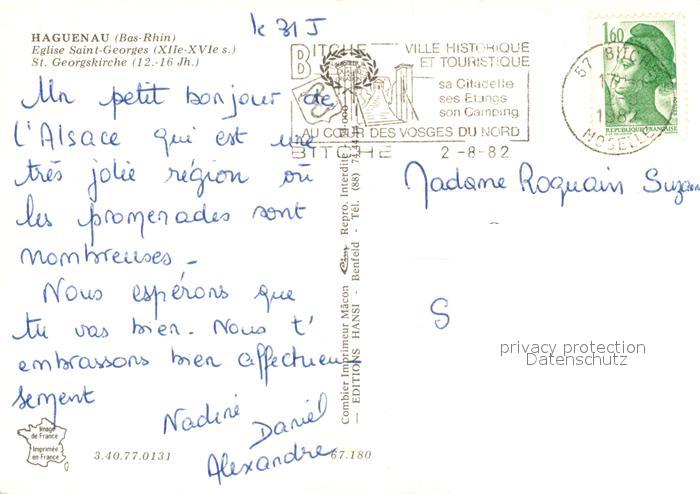 HAGUENAU (Bas-Rhin)
Eglise Saint-Georges (XIIe-XVIe s.)
St. Georgskirche (12.-16 Jh.)
le 31 J
Un petit bonjour de
l'Alsace qui est une
très jolie région où
les promenades sont
nombreuses -
Nous espérons que
tu vas bien. Nous t'
embrassons bien affectueu
sement
Nadine
Daniel
Alexandre
Image
de France
Imprimée
en France
3.40.77.0131
67.180
Combier Imprimeur Mâcon Cim Repro. Interdite
— EDITIONS HANSI - Benfeld - Tél. (88)
BITCHE
VILLE HISTORIQUE
ET TOURISTIQUE
sa Citadelle
ses Etangs
son Camping
AU CŒUR DES VOSGES DU NORD
BITCHE 2-8-82
57 BITCHE
1982
MOSELLE
1,60
REPUBLIQUE FRANÇAISE
Madame Roquain Suzan
S
privacy protection
Datenschutz